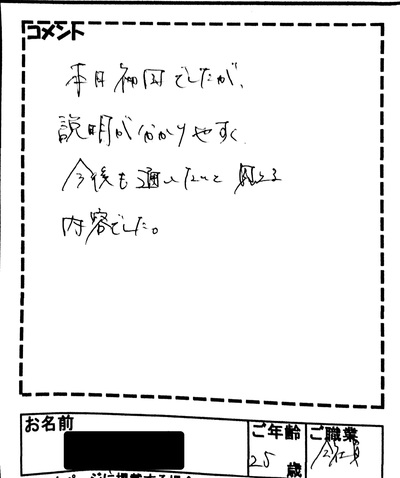 コメント
本日初回でしたが、
説明が分かりやすく
今後も通いたいと思える
内容でした。
お名前
ご年齢
ご職業
25 歳
会社員